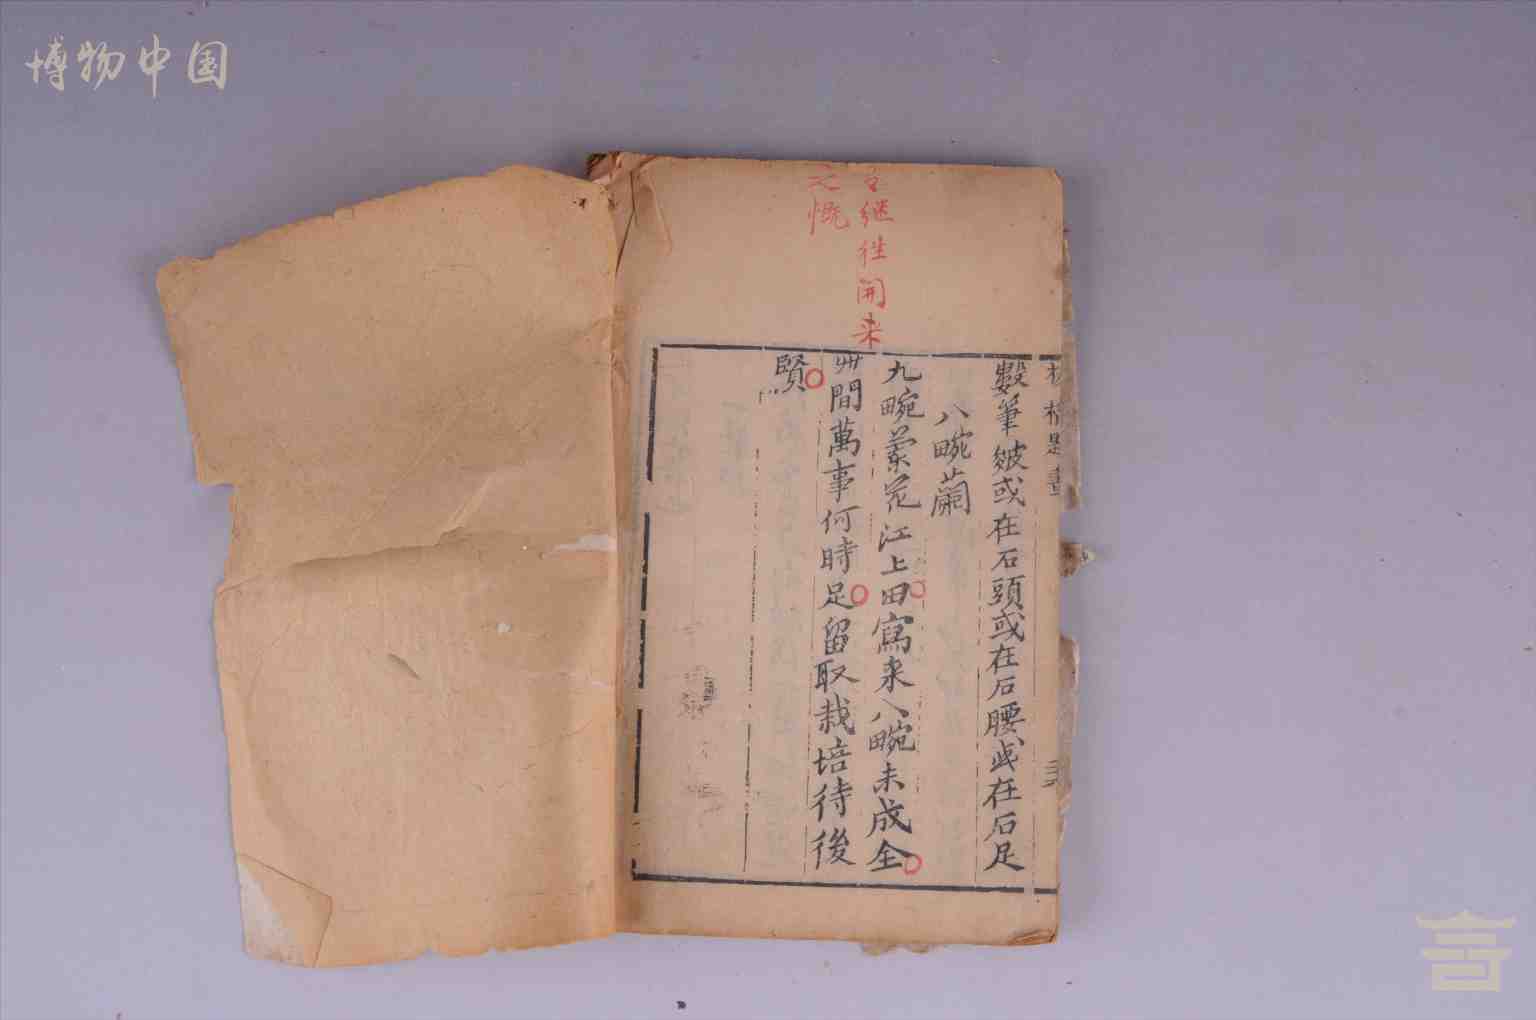 博物中国
继往開来
之慨
數筆皴或在石頭或在石腰或在石足
八畹蘭
九畹蘭花江上田寫来八畹未成全
世間萬事何時足留取栽培待後
賢
板橋題畫